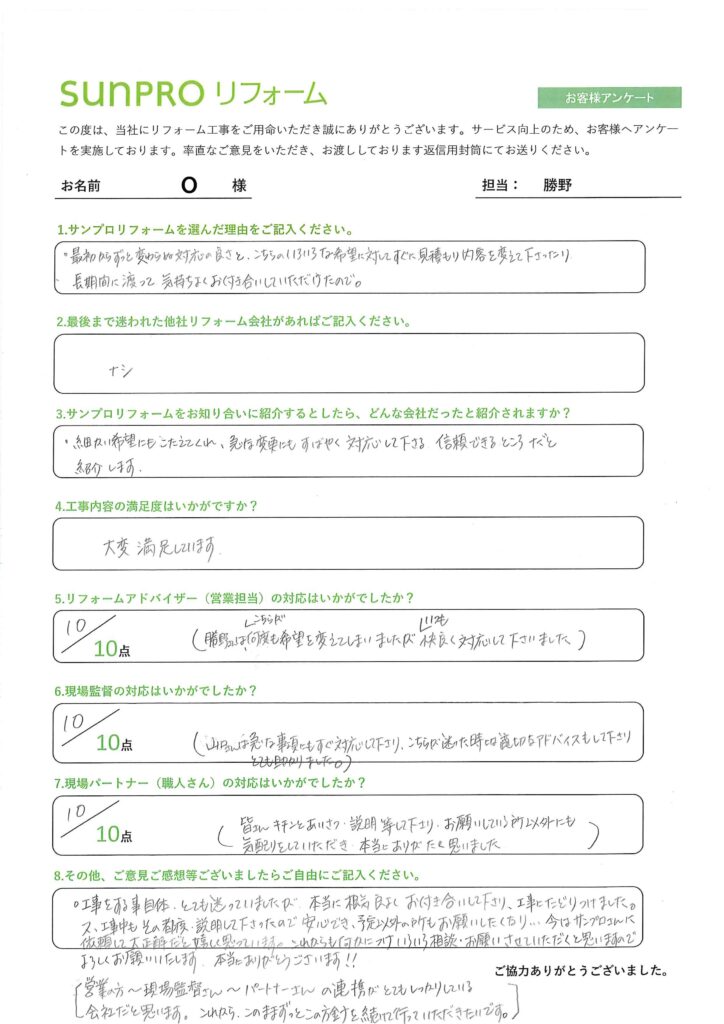 sunPRO リフォーム
お客様アンケート
この度は、当社にリフォーム工事をご用命いただき誠にありがとうございます。サービス向上のため、お客様へアンケー
トを実施しております。率直なご意見をいただき、お渡ししております返信用封筒にてお送りください。
お名前 O 様 担当： 勝野
1.サンプロリフォームを選んだ理由をご記入ください。
・最初からずっと変わらぬ対応の良さと、こちらのいろいろな希望に対してすぐに見積もり内容を変えて下さったり
長期間に渡って 気持ちよくお付き合いしていただけたので。
2.最後まで迷われた他社リフォーム会社があればご記入ください。
ナシ
3.サンプロリフォームをお知り合いに紹介するとしたら、どんな会社だったと紹介されますか？
・細かい希望にもこたえてくれ、急な変更にもすばやく対応して下さる 信頼できるところだと
紹介します.
4.工事内容の満足度はいかがですか？
大変満足しています.
5.リフォームアドバイザー（営業担当）の対応はいかがでしたか？
10/10点
こちらが いつも
(勝野さんは何度も希望を変えてしまいましたが 快良く対応して下さいました)
6.現場監督の対応はいかがでしたか？
10/10点
(山口さんは急な事項にもすぐ対応して下さり、こちらが迷った時には適切なアドバイスもして下さり
とても助かりました。)
7.現場パートナー（職人さん）の対応はいかがでしたか？
10/10点
(皆さん キチンとあいさつ・説明等して下さり・お願いしている所以外にも
気配りをしていただき・本当にありがたく思いました)
8.その他、ご意見ご感想等ございましたらご自由にご記入ください。
・工事をする事自体、とても迷っていましたが 本当に根気良く お付き合いして下さり、工事にたどりつけました。
又、工事中も その都度・説明して下さったので 安心でき、予定以外の所もお願いしたくなり… 今はサンプロさんに
依頼して大正解だと嬉しく思っています。これからも何かにつけいろいろ相談・お願いさせていただくと思いますので
よろしくお願いいたします. 本当にありがとうございます!!
ご協力ありがとうございました。
[営業の方～現場監督さん～パートナーさん の連携がとてもしっかりしている
会社だと思います。これから、このままずっとこの方針を続けて行っていただきたいです。]